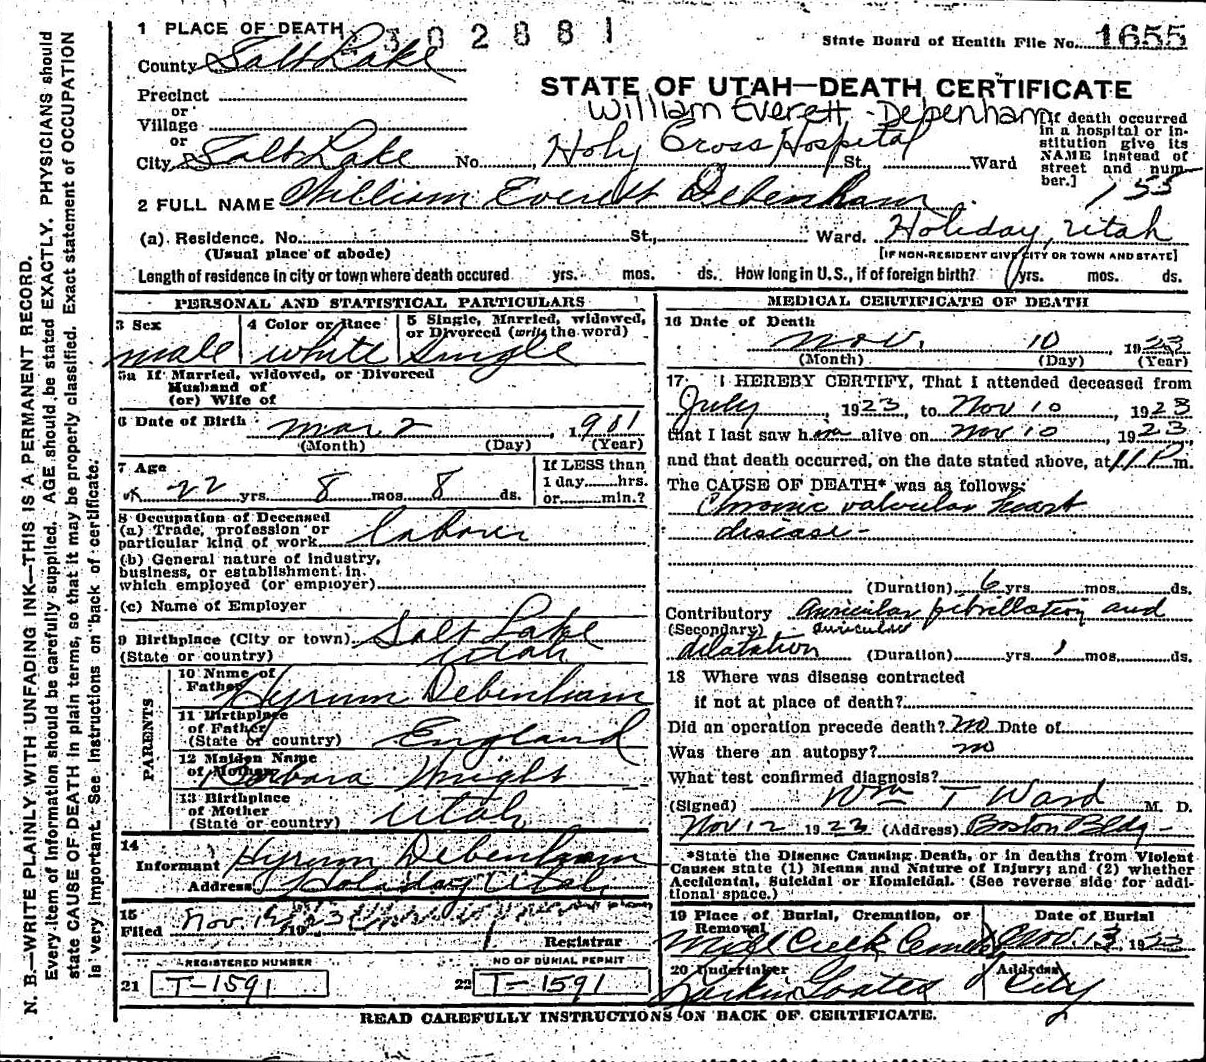 1 PLACE OF DEATH 302881
State Board of Health File No. 1655
County Salt Lake
STATE OF UTAH—DEATH CERTIFICATE
Precinct
William Everett Debenham
or
Village
or
City Salt Lake No. Holy Cross Hospital St., Ward
[If death occurred in a hospital or institution give its NAME instead of street and number.]
155
2 FULL NAME William Everett Debenham
(a) Residence. No. St., Ward. Holiday, Utah
(Usual place of abode) [IF NON-RESIDENT GIVE CITY OR TOWN AND STATE]
Length of residence in city or town where death occured yrs. mos. ds. How long in U.S., if of foreign birth? yrs. mos. ds.
PERSONAL AND STATISTICAL PARTICULARS
3 Sex male
4 Color or Race white
5 Single, Married, widowed, or Divorced (write the word) Single
5a If Married, widowed, or Divorced
Husband of
(or) Wife of
6 Date of Birth Mar 2, 1901
(Month) (Day) (Year)
7 Age 22 yrs. 8 mos. 8 ds.
If LESS than
1 day hrs.
or min.?
8 Occupation of Deceased
(a) Trade, profession or
particular kind of work labour
(b) General nature of industry,
business, or establishment in
which employed (or employer)
(c) Name of Employer
9 Birthplace (City or town) Salt Lake
(State or country) Utah
PARENTS
10 Name of
Father Hyrum Debenham
11 Birthplace
of Father
(State or country) England
12 Maiden Name
of Mother Barbara Wright
13 Birthplace
of Mother
(State or country) Utah
14
Informant Hyrum Debenham
Address Holaday Utah
15
Filed Nov.
Registrar
REGISTERED NUMBER
21 T-1591
NO OF BURIAL PERMIT
22 T-1591
MEDICAL CERTIFICATE OF DEATH
16 Date of Death
Nov. 10, 1923
(Month) (Day) (Year)
17. I HEREBY CERTIFY, That I attended deceased from
July, 1923, to Nov 10, 1923
that I last saw him alive on Nov 10, 1923
and that death occurred, on the date stated above, at 11 P m.
The CAUSE OF DEATH* was as follows:
Chronic valvular heart
disease-
(Duration) 6 yrs. mos. ds.
Contributory Auricular fibrillation and
(Secondary) auricular
dilatation (Duration) yrs. mos. ds.
18 Where was disease contracted
if not at place of death?
Did an operation precede death? no Date of
Was there an autopsy? no
What test confirmed diagnosis?
(Signed) Wm T Ward M. D.
Nov 12 1923 (Address) Boston Bldg-
*State the Disease Causing Death, or in deaths from Violent
Causes state (1) Means and Nature of Injury; and (2) whether
Accidental, Suicidal or Homicidal. (See reverse side for additional space.)
19 Place of Burial, Cremation, or Removal
Date of Burial
Mill Creek Nov. 13, 1923
20 Undertaker Address
Larkin City
READ CAREFULLY INSTRUCTIONS ON BACK OF CERTIFICATE.
N. B.—WRITE PLAINLY WITH UNFADING INK—THIS IS A PERMANENT RECORD.
Every item of information should be carefully supplied. AGE should be stated EXACTLY. PHYSICIANS should
state CAUSE OF DEATH in plain terms, so that it may be properly classified. Exact statement of OCCUPATION
is very important. See instructions on back of certificate.